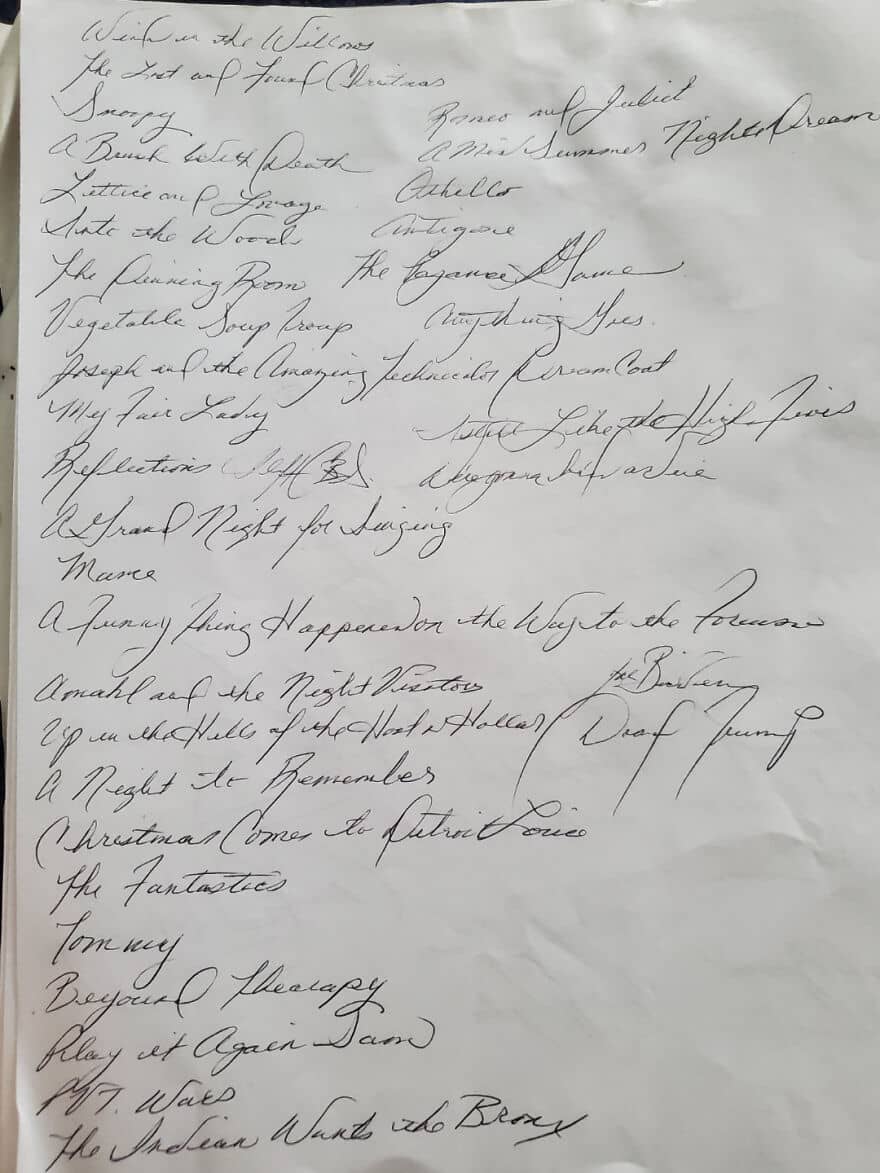 Wind in the Willows
The Lost and Found Christmas
Snoopy
Romeo and Juliet
A Brush With Death
A MidSummer Nights Dream
Lettice and Lovage
Othello
Into the Woods
Antigone
The Dinning Room
The Game
Vegetable Soup Troup
Anything Goes.
Joseph and the Amazing Technicolor DreamCoat
My Fair Lady
Like the High Fives
Reflections
A Grand Night for Singing
Mame
A Funny Thing Happened on the Way to the Forum
Joe Biden
Amahl and the Night Visitors
Up in the Hills of the Hoot n Hollar
Trump
A Night to Remember
Christmas Comes to Detroit Louie
The Fantastics
Tommy
Beyound Therapy
Play it Again Sam
PVT. Wars
The Indian Wants the Bronx